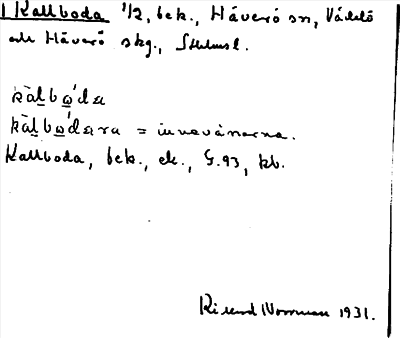 Kallboda 1/2, bek., Häverö sn, Väddö
och Häverö skg., Sthlmsl.
kàlbω´da
kàlbω´dara = innevånarna.
Kallboda, bek., ek., G. 93, kb.
Rikard Norrman 1931.